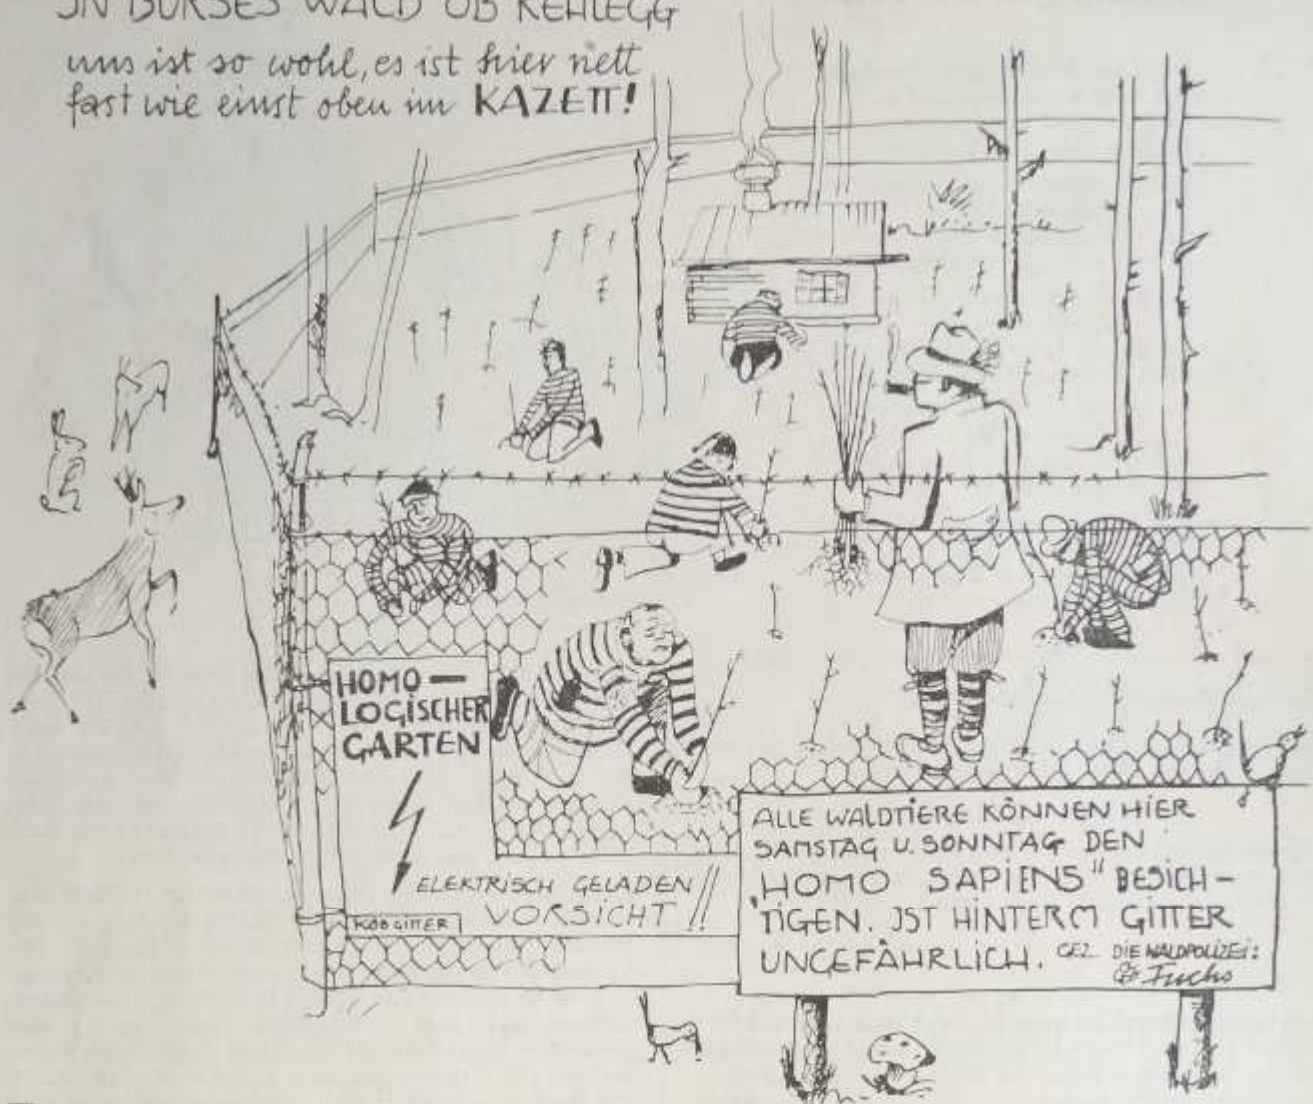 IN BÜRSES WALD OB KEHLEGG
uns ist so wohl, es ist hier nett
fast wie einst oben im KAZETT!
HOMO-
LOGISCHER
GARTEN
ELEKTRISCH GELADEN!!
VORSICHT!!
KÖB GITTER
ALLE WALDTIERE KÖNNEN HIER
SAMSTAG U. SONNTAG DEN
"HOMO SAPIENS" BESICH-
TIGEN. IST HINTERM GITTER
UNGEFÄHRLICH. GEZ. DIE WALDPOLIZEI:
Fuchs